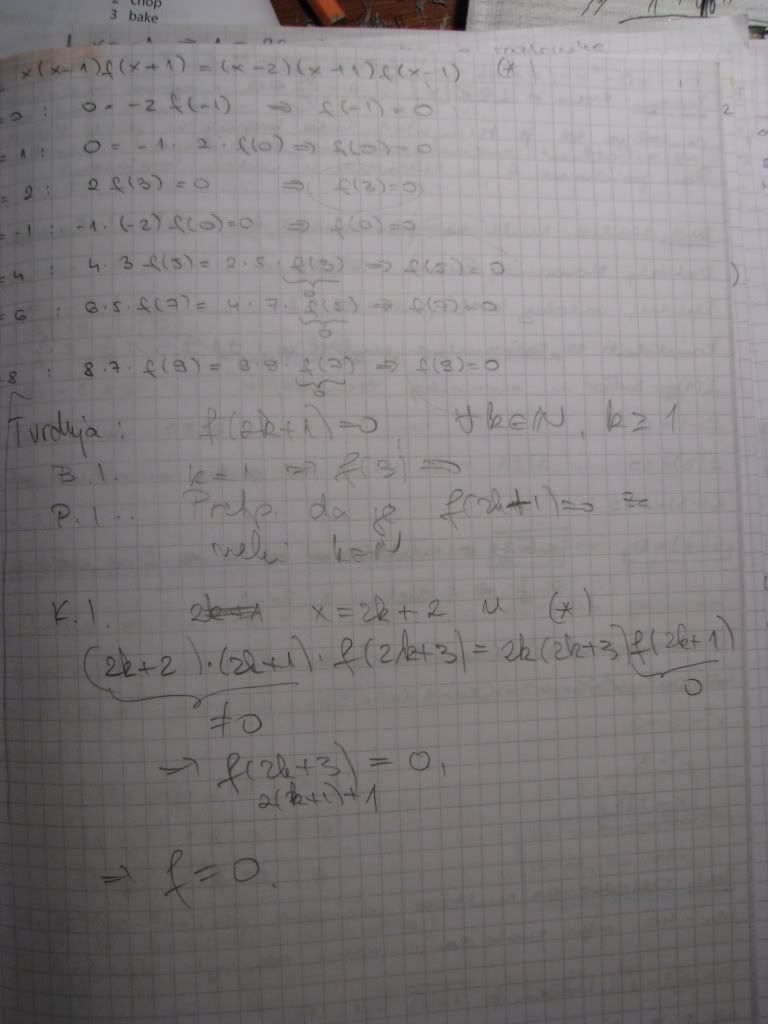 2 chop
3 bake
x(x-1)f(x+1) = (x-2)(x+1)f(x-1) (*)
=0 : 0 = -2f(-1) ⇒ f(-1)=0
=1 : 0 = -1·2·f(0) ⇒ f(0)=0
=2 : 2f(3)=0 ⇒ f(3)=0
=-1 : -1·(-2)f(0)=0 ⇒ f(0)=0
=4 : 4·3f(5) = 2·5·f(3) ⇒ f(5)=0
0
=6 : 6·5·f(7) = 4·7·f(5) ⇒ f(7)=0
0
8 : 8·7·f(9) = 6·9·f(7) ⇒ f(9)=0
0
Tvrdnja: f(2k+1)=0, ∀k∈N, k≥1
B.I. k=1 ⇒ f(3)=0
P.I. Pretp. da je f(2k+1)=0 za
neki k∈N
K.I. x=2k+2 u (*)
(2k+2)·(2k+1)·f(2k+3) = 2k(2k+3)f(2k+1)
≠0 0
⇒ f(2k+3) = 0,
2(k+1)+1
⇒ f=0.